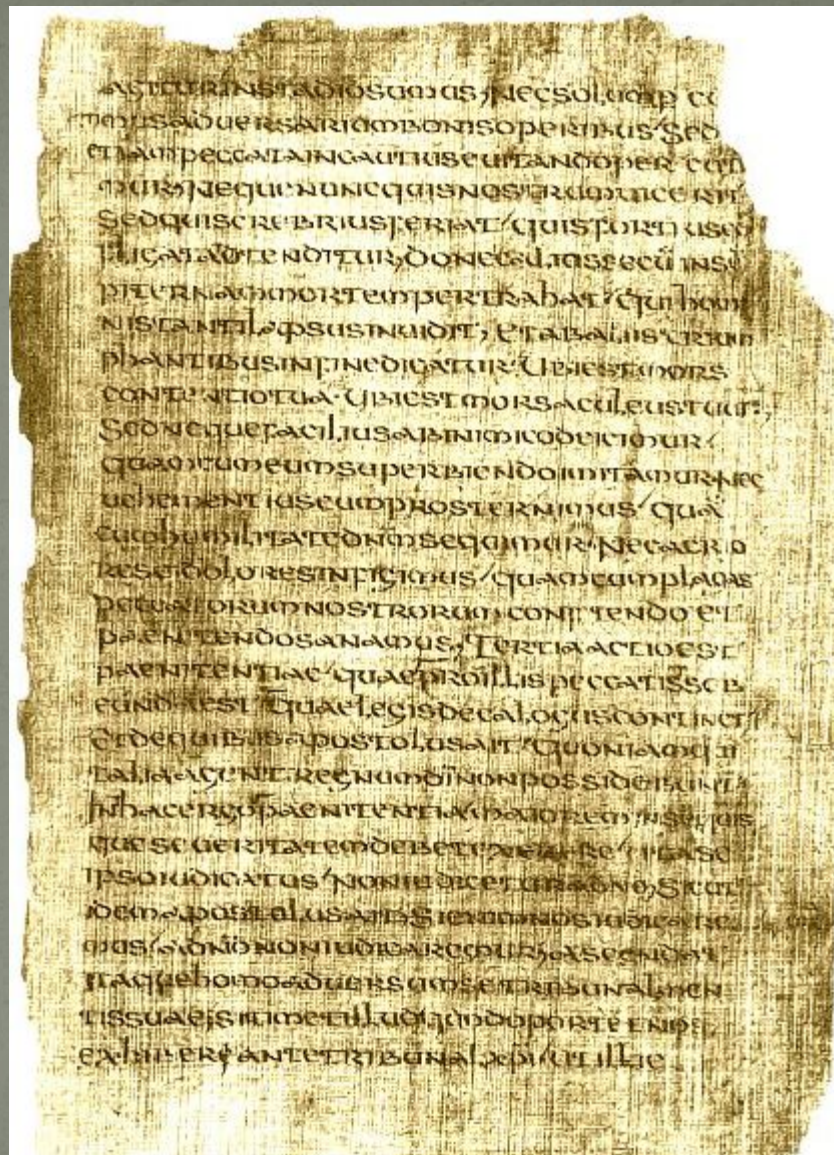 AGITURINSTADIOSUMUS, NECSOLUM P CU
TIMUSADUERSARIUMBONISOPERIBUS/ SED
ETIAMPECCATAINCAUTIUSEUITANDOPERCUTI
MUR, NEQUENUNCQUISNOSTRUMUICERIT
SEDQUISCREBRIUSFERIAT/ QUISFORTIUSCO
FLIGATADTENDITUR, DONEC INS
PITERNAMMORTEMPERTRAHAT/ QUIHOMI
NISTANTILAPSUSINUIDIT, ETABALIISTRIUM
PHANTIBUSINFINEDICATUR· UBIESTMORS
CONTENTIOTUA· UBIESTMORSACULEUSTUUS,
SEDNEQUEFACILIUSABINIMICODEICIMUR/
QUAMCUMEUMSUPERBIENDOIMITAMUR·NEC
UEHEMENTIUSEUMPROSTERNIMUS/ QUĀ
CUMHUMILITATEDN̄MSEQUIMUR· NECACRIO
RESEIDOLORESINFIGIMUS/ QUAMCUMPLAGAS
PECCATORUMNOSTRORUMCONFITENDOET
PAENITENDOSANAMUS, TERTIAACTIOEST
PAENITENTIAE· QUAEPROILLISPECCATISSUB
EUNDAEST/ QUAELEGISDECALOGUSCONTINET/
ETDEQUIBUSAPOSTOLUSAIT/ QUONIAMQUI
TALIAAGUNT·REGNUMDĪNONPOSSIDEBUNT·
INHACERGOPAENITENTIAMAIOREMINSEQUIS
QUESEUERITATEMDEBETEXERCERE/ UTASE
IPSOIUDICATUS/ NONIUDICETURADNO, SICUT
IDEMAPOSTOLUSAIT·SIENIMNOSIUDICARE
MUS/ ADN̄ONONIUDICAREMUR, ASCENDAT
ITAQUEHOMOADUERSUMSETRIBUNALMEN
TISSUAE, SITIMETILLUDQUODOPORTETNOS
EXHIBEREANTETRIBUNALXPI/ UTILLIC